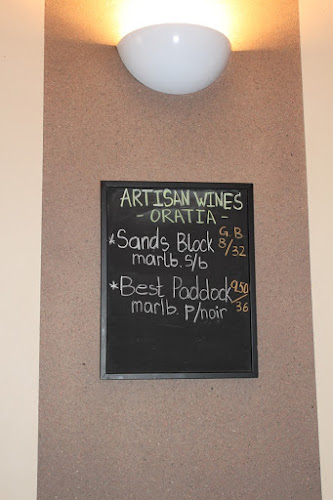 ARTISAN WINES
- ORATIA -
G B
*Sands Block 8/32
marlb. s/b
*Best Paddock 9.50/36
marlb. p/noir